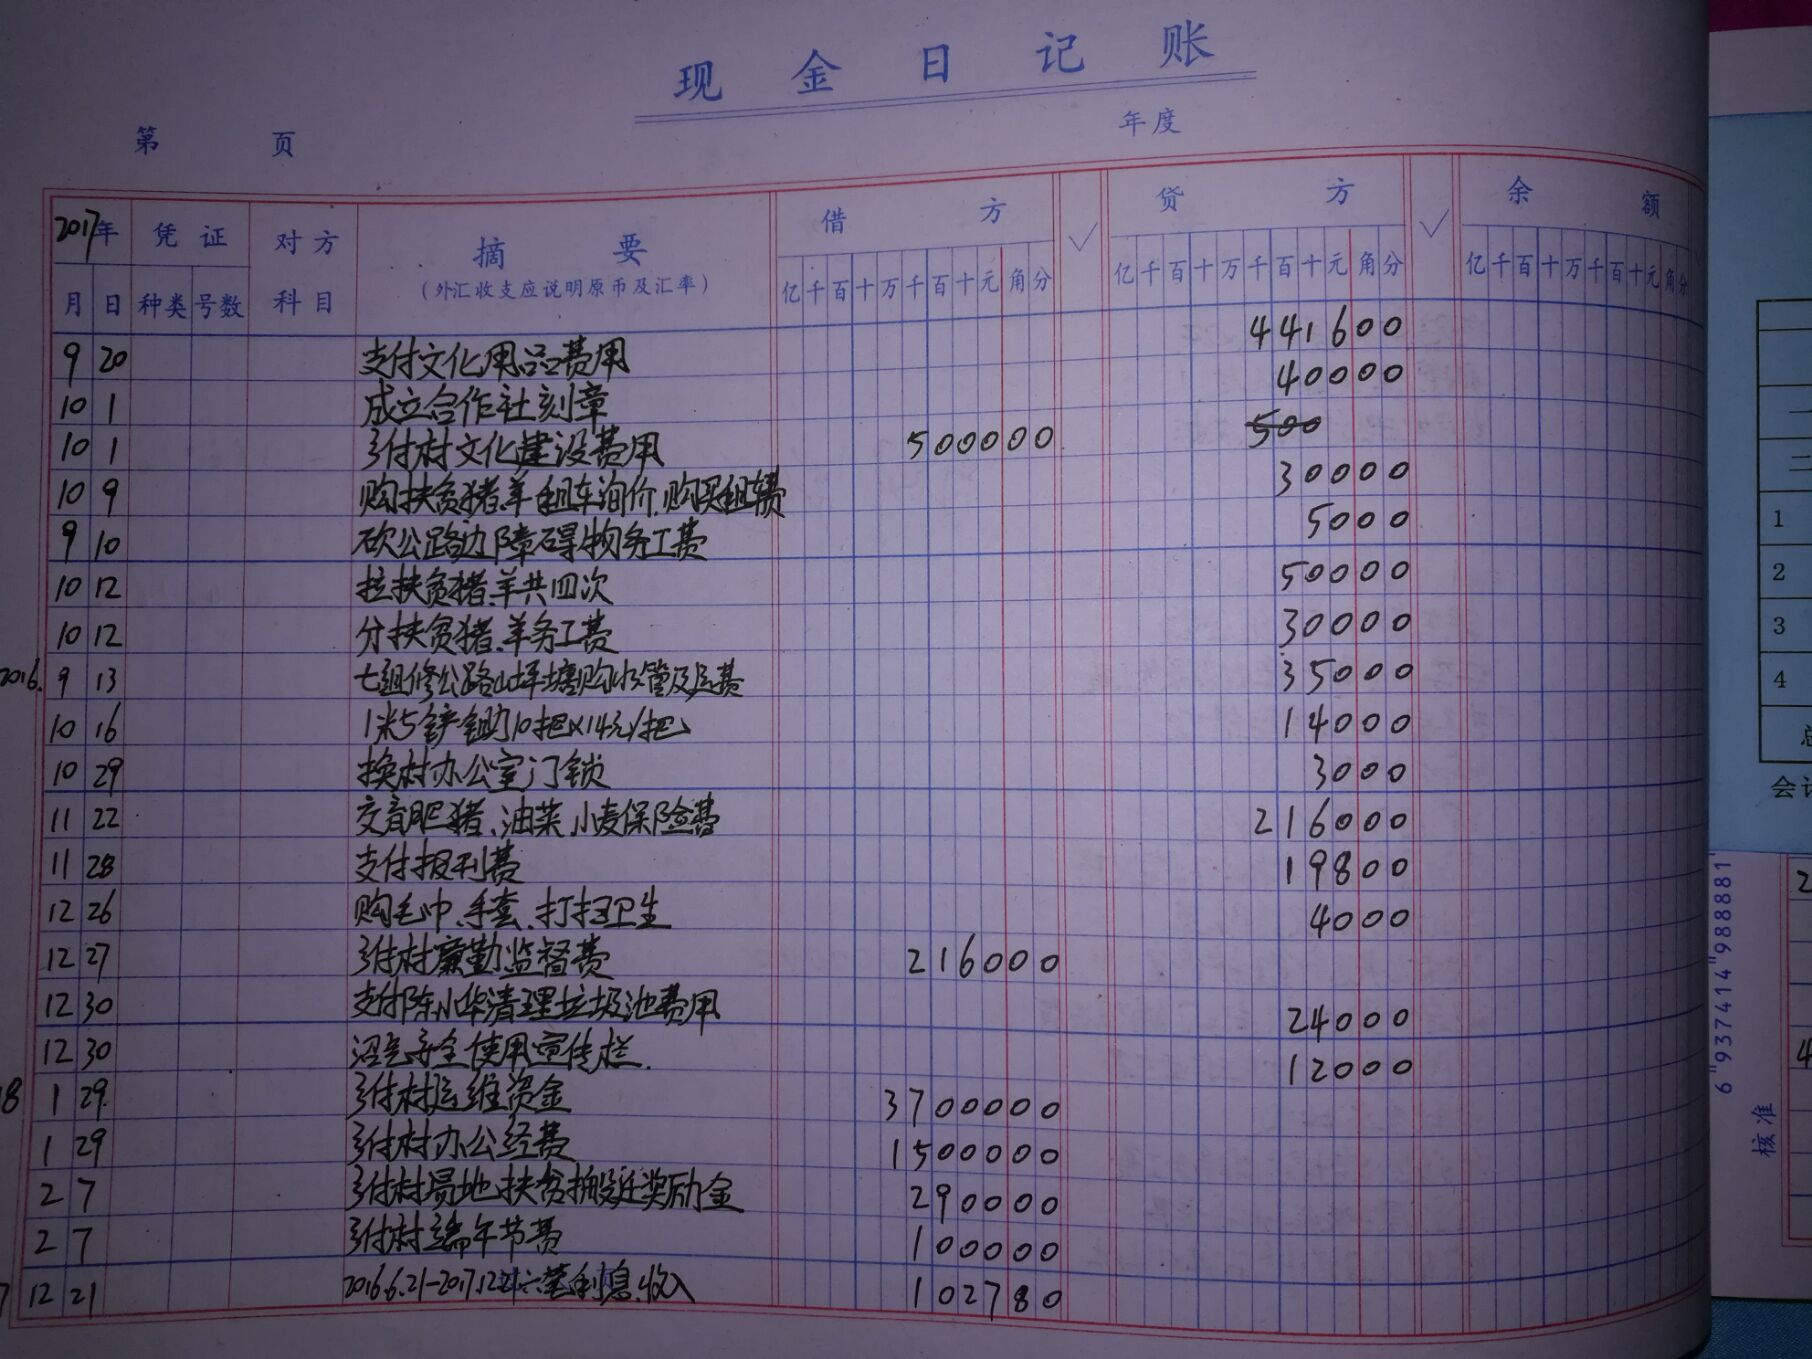 现金日记账
第 页 年度
2017年 凭证 对方 摘要 借方 ✓ 贷方 ✓ 余额
(外汇收支应说明原币及汇率)
月 日 种类 号数 科目 亿千百十万千百十元角分 亿千百十万千百十元角分 亿千百十万千百十元角分
9 20 支付文化用品费用 441600
10 1 成立合作社刻章 40000
10 1 拨付村文化建设费用 500000 500
10 9 购扶贫猪、羊租车询价、购买租车费 30000
9 10 砍公路边障碍物务工费 5000
10 12 拉扶贫猪、羊共四次 50000
10 12 分扶贫猪、羊务工费 30000
2016. 9 13 七组修公路山坪塘购水管及运费 35000
10 16 1米5铲锄10把×14元/把 14000
10 29 换村办公室门锁 3000
11 22 交育肥猪、油菜、小麦保险费 216000
11 28 支付报刊费 19800
12 26 购毛巾、手套、打扫卫生 4000
12 27 拨付村廉勤监督费 216000
12 30 支付陈小华清理垃圾池费用 24000
12 30 沼气安全使用宣传栏. 12000
18 1 29 拨付村运维资金 3700000
1 29 拨付村办公经费 1500000
2 7 拨付村易地扶贫搬迁奖励金 290000
2 7 拨付村端午节费 100000
7 12 21 2016.6.21-2017.12.21 利息收入 102780
1
2
3
4
会计
6"937414"988881"
核准